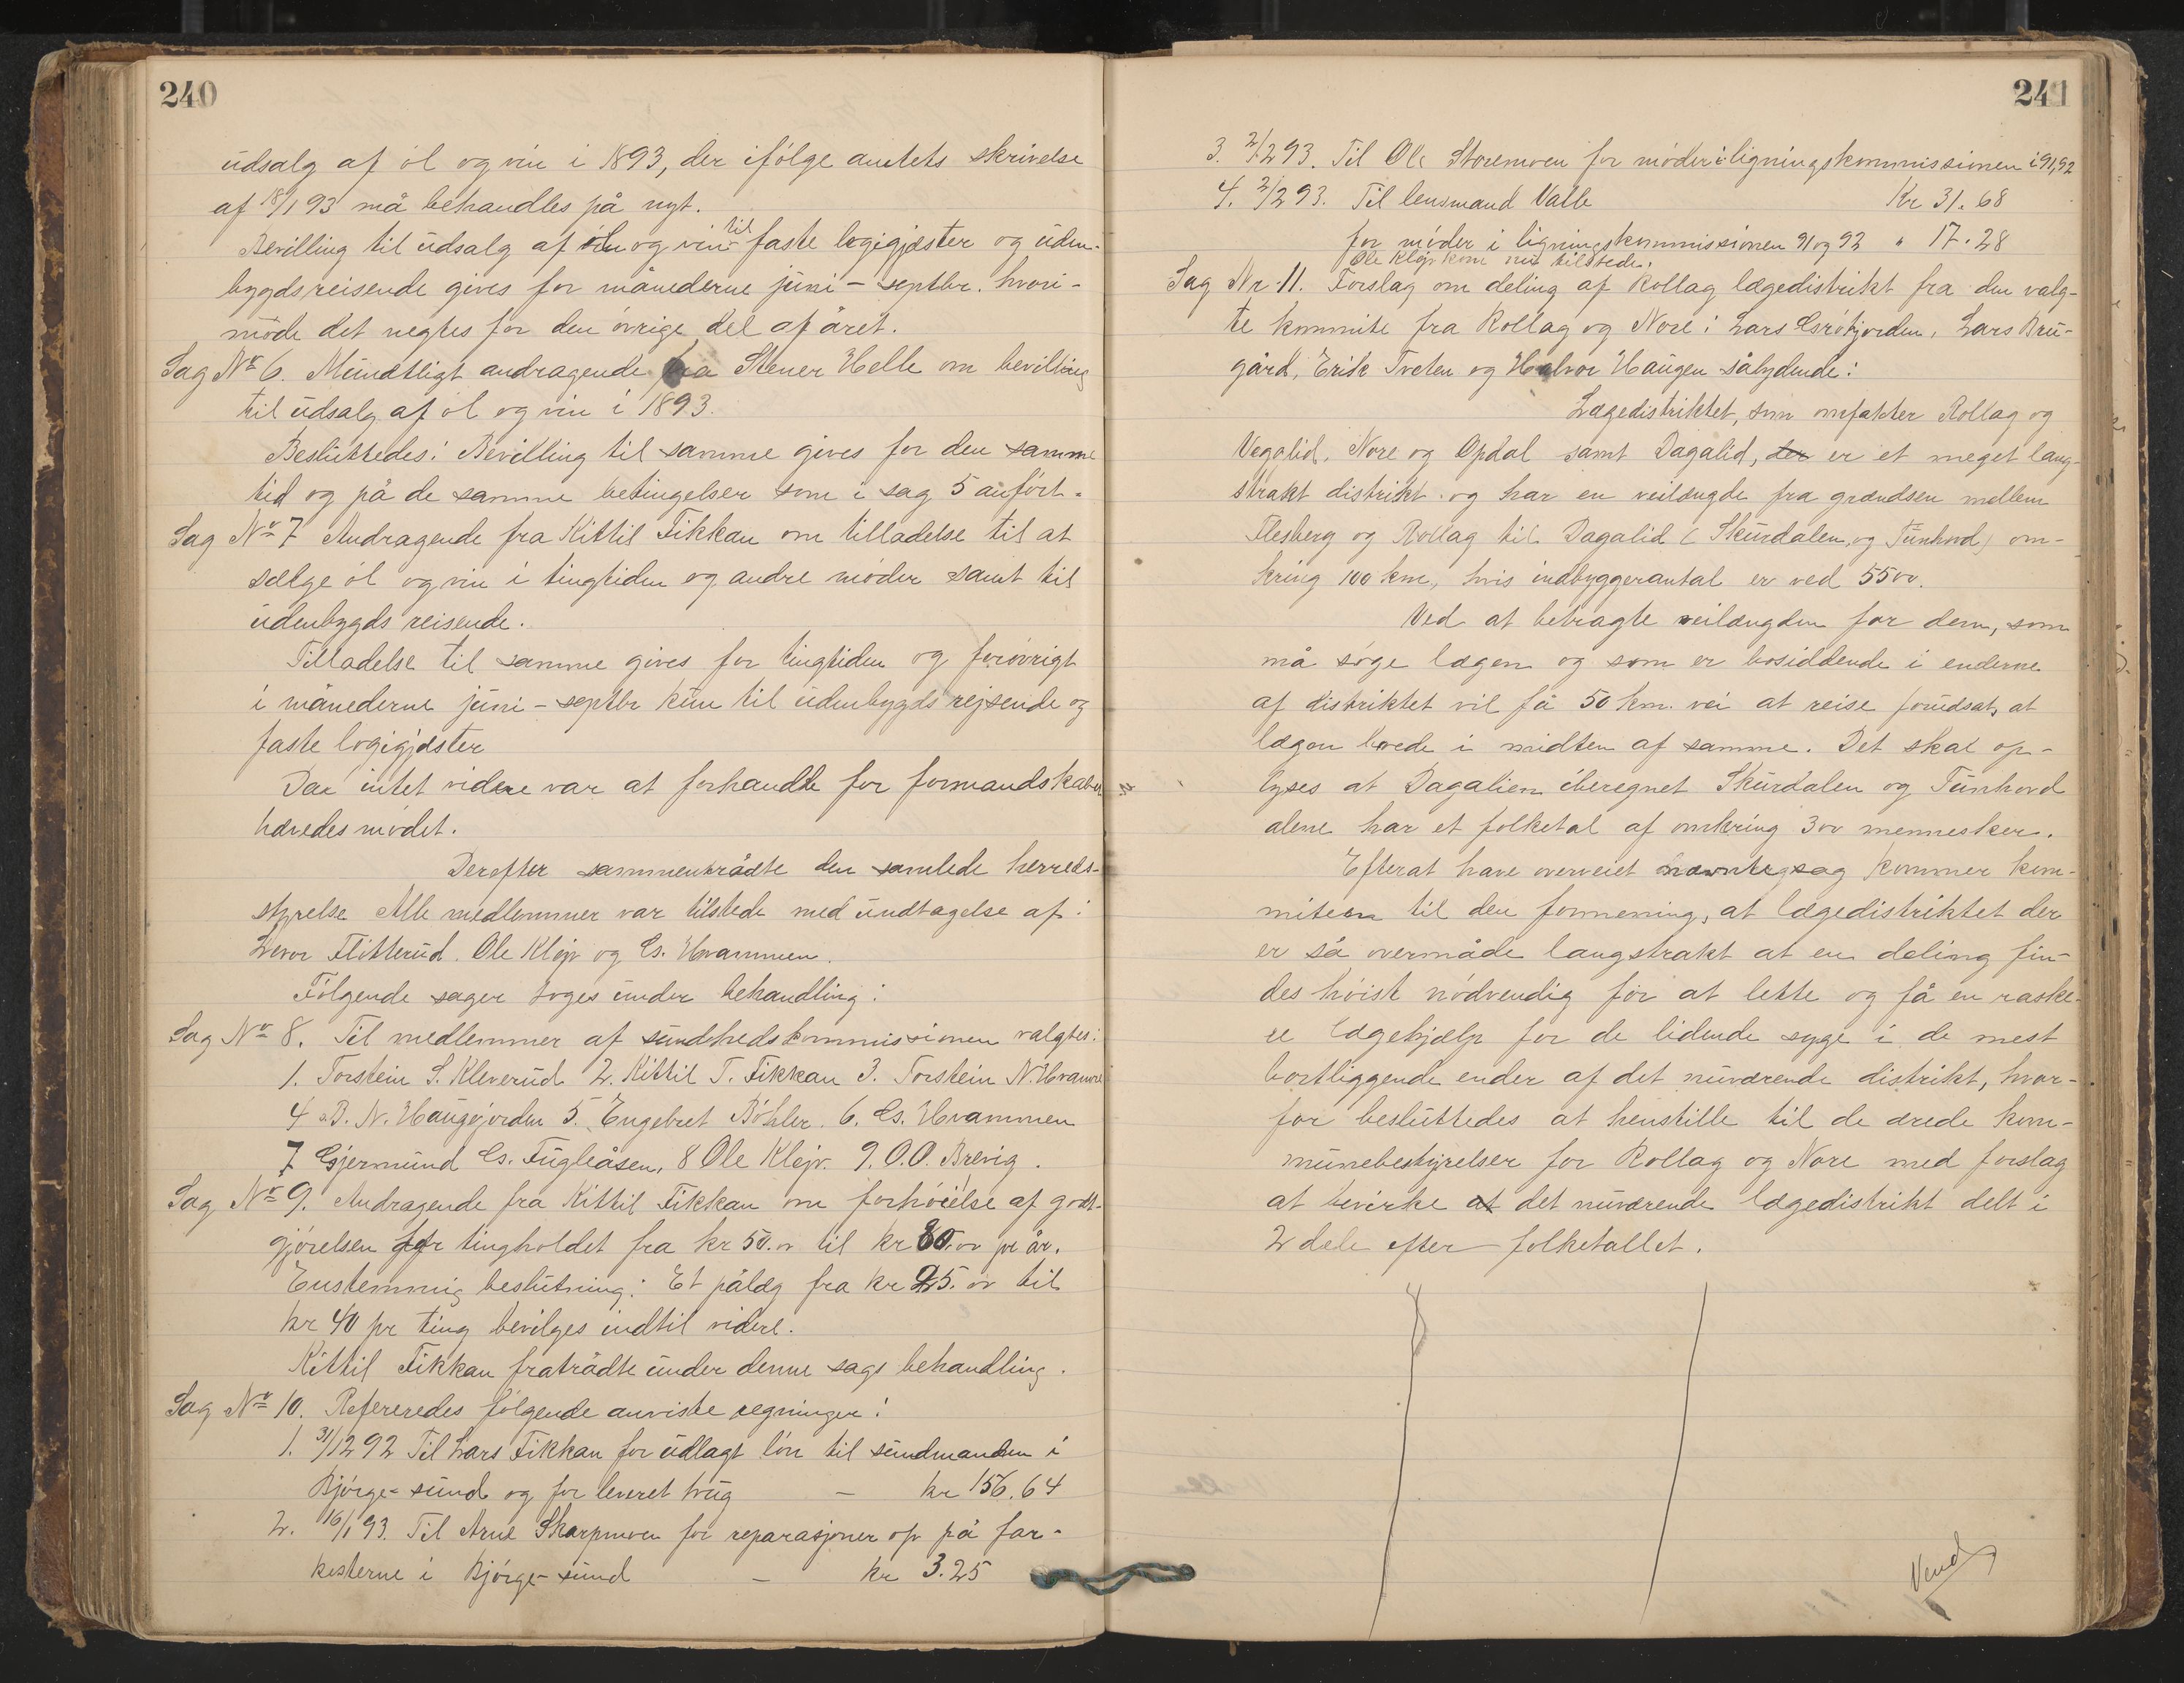 240
udsalg af øl og vin i 1893, der ifølge amtets skrivelse
af 18/1 93 må behandles på nyt.
Bevilling til udsalg af øl og vin til faste logigjæster og uden-
bygdsreisende gives for månederne juni – septbr. hvori-
mode det negtes for den øvrige del af året.
Sag Nr 6. Mundtligt andragende fra Stener Helle om bevilling
til udsalg af øl og vin i 1893.
Besluttedes: Bevilling til samme gives for den samme
tid og på de samme betingelser som i sag 5 anført.
Sag Nr 7 Andragende fra Kittil Fikkan om tilladelse til at
sælge øl og vin i tingtiden og andre møder samt til
udenbygds reisende.
Tilladelse til samme gives for tingtiden og forøvrigt
i månederne juni – septbr kun til udenbygds rejsende og
faste logigjæster
Da intet videre var at forhandle for formandskabet
hævedes mødet.
Derefter sammentrådte den samlede herreds-
styrelse Alle medlemmer var tilstede med undtagelse af:
Levor Flitterud. Ole Klejv og Gs. Hvammen.
Følgende sager toges under behandling:
Sag Nr 8. Til medlemmer af sundhedskommissionen valgtes:
1. Torstein S. Kleverud 2. Kittil T. Fikkan 3. Torstein N. Hvamme
4 B. N. Haugejorden 5. Engebret Bøhler. 6. Gs. Hvammen
7 Gjermund Gs. Fugleåsen, 8 Ole Klejv. 9. O. O. Brevig.
Sag Nr 9. Andragende fra Kittil Fikkan om forhøielse af godt-
gjørelsen for tingholdet fra kr 50.00 til kr 80.00 pr år.
Enstemmig beslutning: Et pålæg fra kr 25.00 til
kr 40 pr ting bevilges indtil videre.
Kittil Fikkan fratrådte under denne sags behandling.
Sag Nr 10. Refereredes følgende anviste regninger:
1. 31/12 92 Til Lars Fikkan for udlagt løn til sundmanden i
Bjørge-sund og for leveret trug – kr 156.64
2. 16/1 93. Til Arne Skarpmoen for reparasjoner op på far-
kosterne i Bjørge-sund – kr 3.25
241
3. 2/2 93. Til Ole Storemoen for møder i ligningskommissionen i 91,92
Kr 31.68
4. 2/2 93. Til lensmand Valle
for møder i ligningskommissionen 91 og 92 " 17.28
Ole Klejv kom nu tilstede.
Sag Nr 11. Forslag om deling af Rollag lægedistrikt fra den valg-
te kommite fra Rollag og Nore: Lars Lars Bru-
gård, Erik Tveten og Halvor Haugen sålydende:
Lægedistriktet, som omfatter Rollag og
Veglid, Nore og Opdal samt Dagalid, der er et meget lang-
strakt distrikt og har en veilængde fra grændsen mellem
Flesberg og Rollag til Dagalid (Skurdalen, og Tunhovd) om-
kring 100 km, hvis indbyggerantal er ved 5500.
Ved at betragte veilængden for dem, som
må søge lægen og som er bosiddende i enderne
af distriktet vil få 50 km. vei at reise forudsat, at
lægen boede i midten af samme. Det skal op-
lyses at Dagalien iberegnet Skurdalen og Tunhovd
alene har et folketal af omkring 300 mennesker.
Efterat have overveiet nævnte sag kommer kom-
miteen til den formening, at lægedistriktet der
er så overmåde langstrakt at en deling fin-
des høist nødvendig for at lette og få en raske-
re lægehjælp for de lidende syge i de mest
bortliggende ender af det nuværende distrikt, hvor-
for besluttedes at henstille til de ærede kom-
munebestyrelser for Rollag og Nore med forslag
at bevirke at det nuværende lægedistrikt delt i
2 dele efter folketallet.
Vend